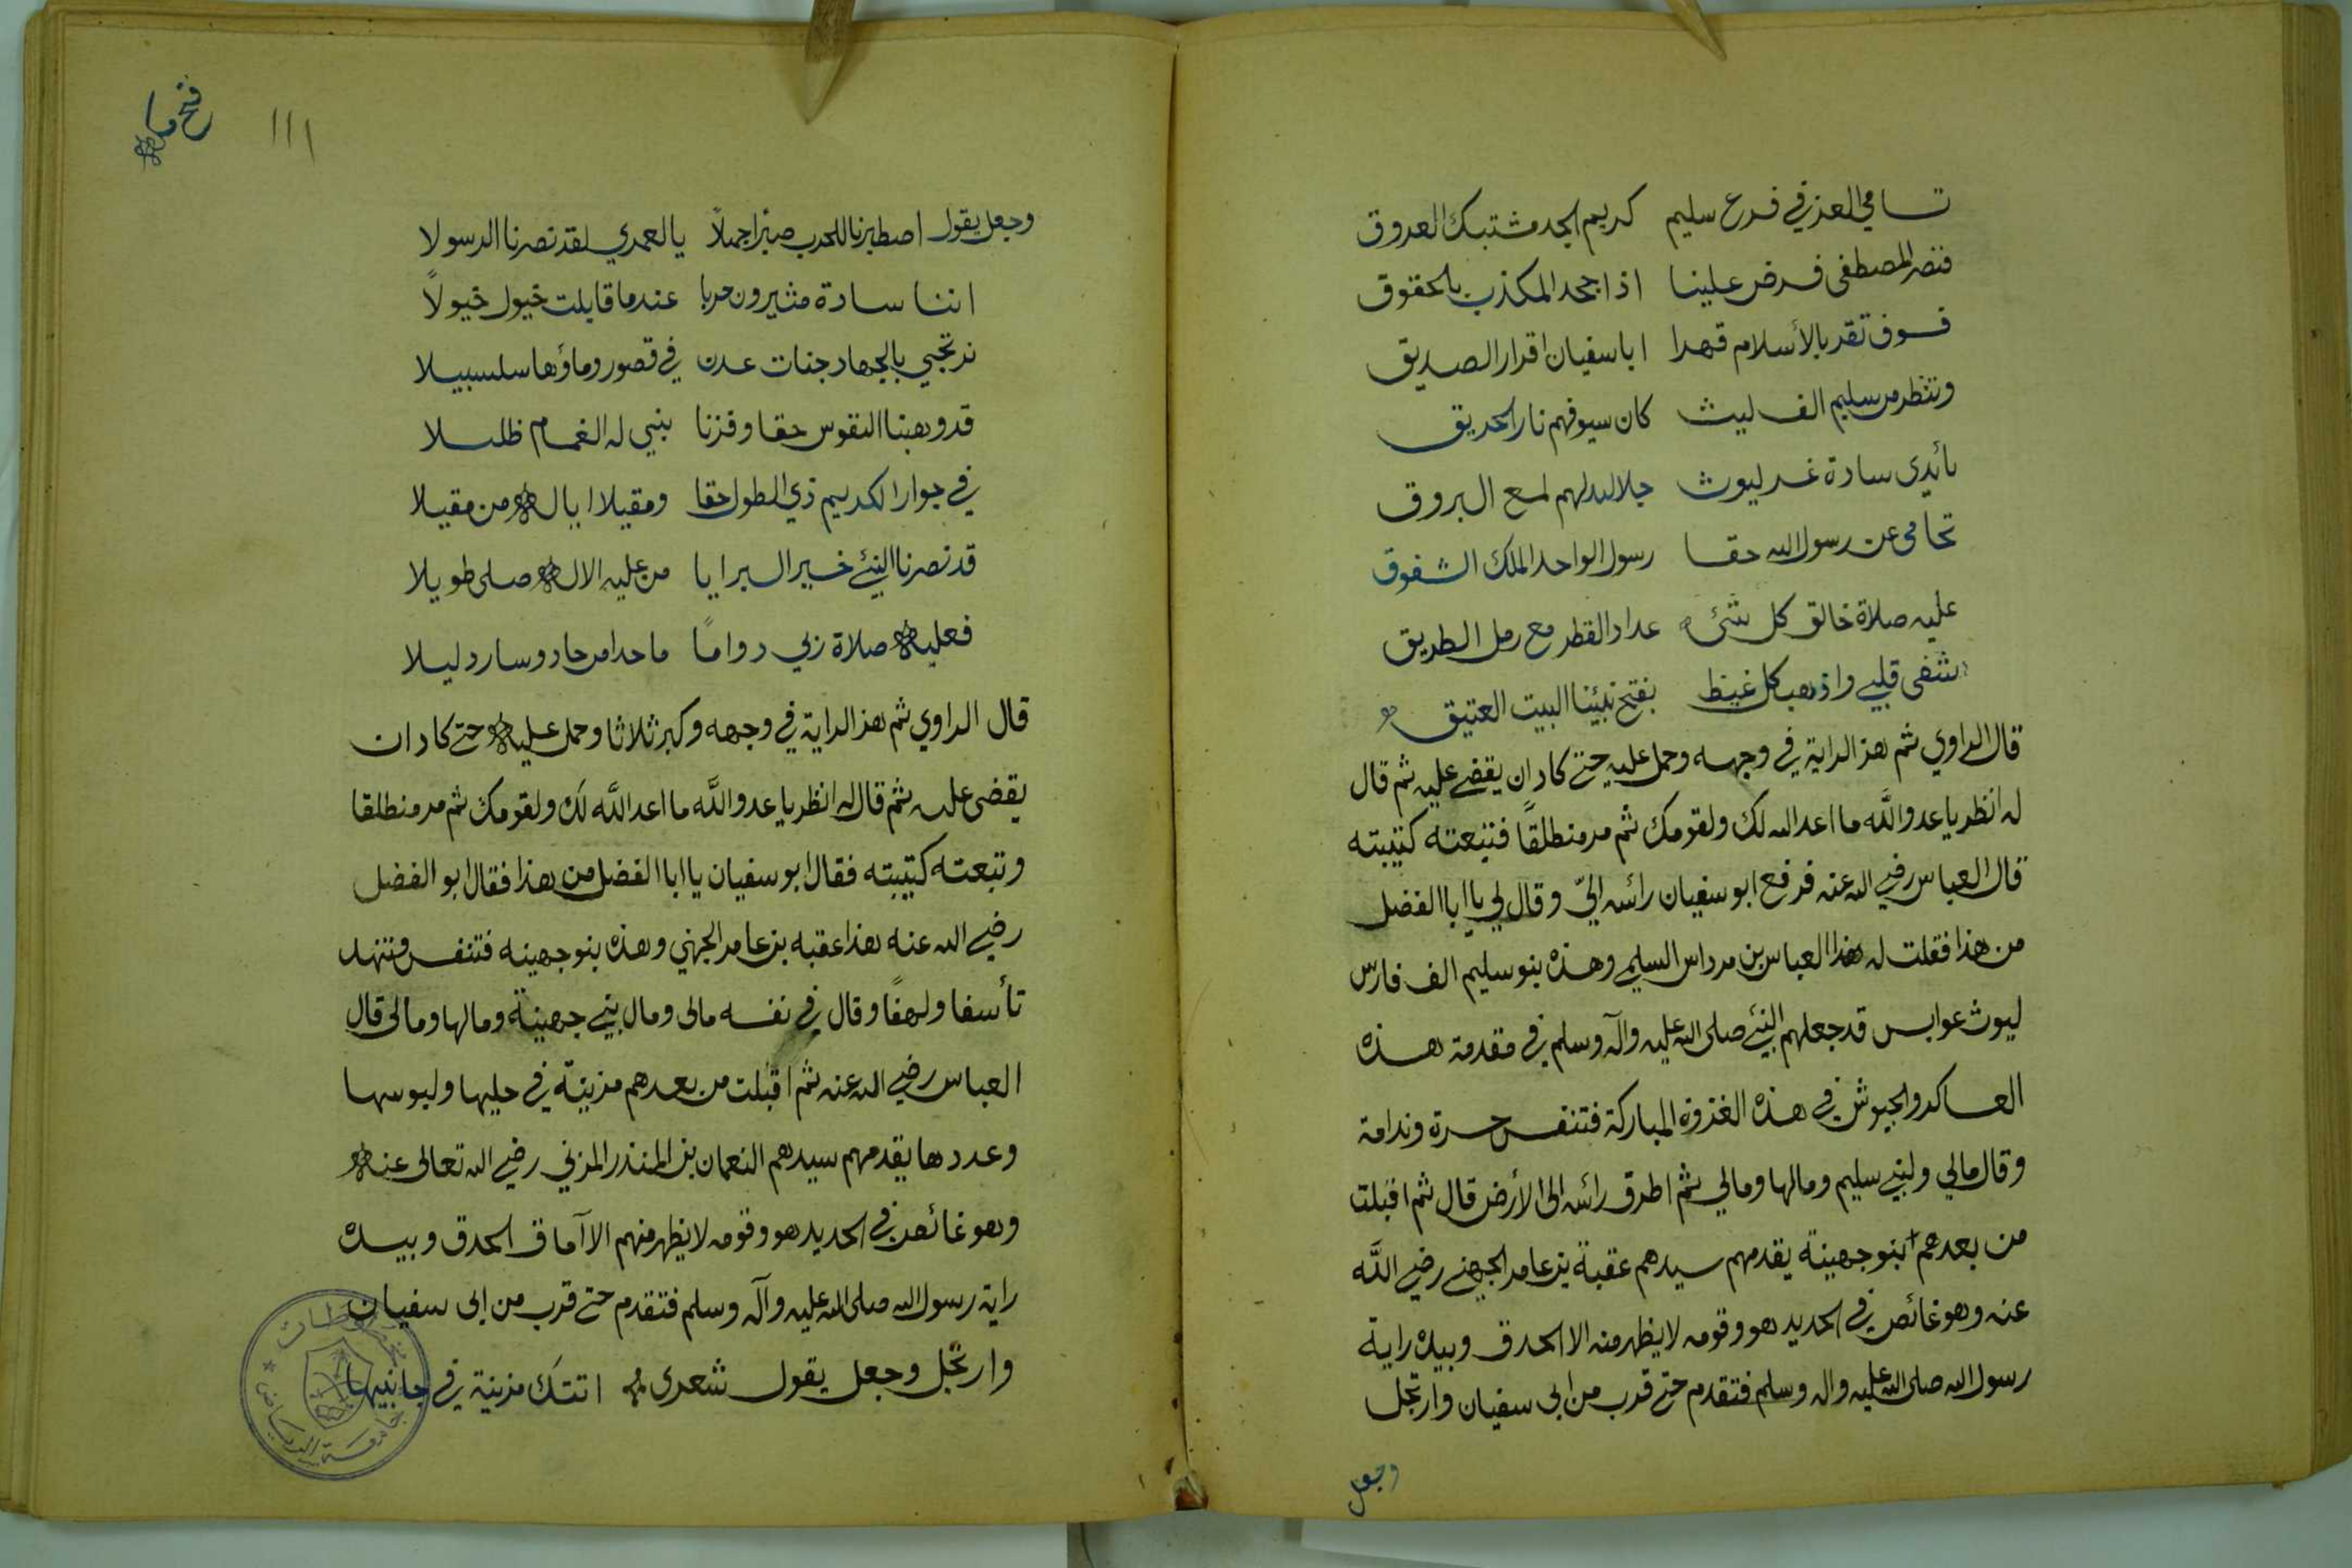 تسامي العز في فرع سليم كريم الجد مشتبك العروق
فنصر المصطفى فرض علينا اذا جحد المكذب بالحقوق
فسوف تقر بالأسلام قهرا اباسفيان اقرار الصديق
وتنظر من سليم الف ليث كان سيوفهم نار الحريق
بأيدي سادة غر ليوث لهم لمع البروق
تحامى عن رسول الله حقا رسول الواحد الملك الشفوق
عليه صلاة خالق كل شئ عداد القطر مع رمل الطريق
شفى قلبي واذهب كل غيظ بفتح نبينا البيت العتيق
قال الراوي ثم هز الراية في وجهه وحمل عليه حتى كاد ان يقضي عليه ثم قال
له انظر يا عدو الله ما اعد الله لك ولقومك ثم مر منطلقاً فتبعته كتيبته
قال العباس رضي الله عنه فرفع ابو سفيان رأسه اليّ وقال لي يا ابا الفضل
من هذا فقلت له هذا العباس بن مرداس السليمي وهذه بنو سليم الف فارس
ليوث عوابس قد جعلهم النبي صلى الله عليه وآله وسلم في مقدمة هذه
العساكر والجيوش في هذه الغزوة المباركة فتنفس حسرة وندامة
وقال مالي ولبني سليم ومالها ومالي ثم اطرق رأسه الى الأرض قال ثم اقبلت
من بعدهم بنو جهينة يقدمهم سيدهم عقبة بن عامر الجهني رضي الله
عنه وهو غائص في الحديد هو وقومه لا يظهر منه الا الحدق وبيده راية
رسول الله صلى الله عليه واله وسلم فتقدم حتى قرب من ابي سفيان وارتجل
وجعل
فتح
١١١
وجعل يقول اصطبرنا للحرب صبراً جميلاً يالعمري لقد نصرنا الرسولا
اننا سادة مثيرون حربا عندما قابلت خيول خيولاً
نرتجي بالجهاد جنات عدن في قصور وماؤها سلسبيلا
قد وهبنا النفوس حقا وفزنا بنبي له الغمام ظليلا
في جوار الكريم ذي الطول حقا ومقيلا ايا له من مقيلا
قد نصرنا النبي خير البرايا من عليه الاله صلى طويلا
فعليه صلاة ربي دواماً ما حدا من حاد وسار دليلا
قال الراوي ثم هز الراية في وجهه وكبر ثلاثا وحمل عليه حتى كاد ان
يقضى عليه ثم قال له انظر يا عدو الله ما اعد الله لك ولقومك ثم مر منطلقا
وتبعته كتيبته فقال ابو سفيان يا ابا الفضل من هذا فقال ابو الفضل
رضي الله عنه هذا عقبه بن عامر الجهني وهذه بنو جهينه فتنفس وتنهد
تأسفا ولهفاً وقال في نفسه مالى ومال بني جهينة ومالها ومالى قال
العباس رضي الله عنه ثم اقبلت من بعدهم مزينة في حليها ولبوسها
وعددها يقدمهم سيدهم النعمان بن المنذر المزني رضي الله تعالى عنه
وهو غائص في الحديد هو وقومه لا يظهر منهم الا آماق الحدق وبيده
راية رسول الله صلى الله عليه وآله وسلم فتقدم حتى قرب من ابى سفيان
وارتجل وجعل يقول شعرى اتتك مزينة في جانبيها
جامعة الرياض